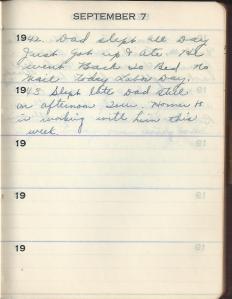 SEPTEMBER 7
1942. Dad slept all Day
Just got up & ate. He
went Back to Bed no
mail today Labor Day.
1943 Slept late Dad still
on afternoon Homer H
is working with him this
week.
19
19
19